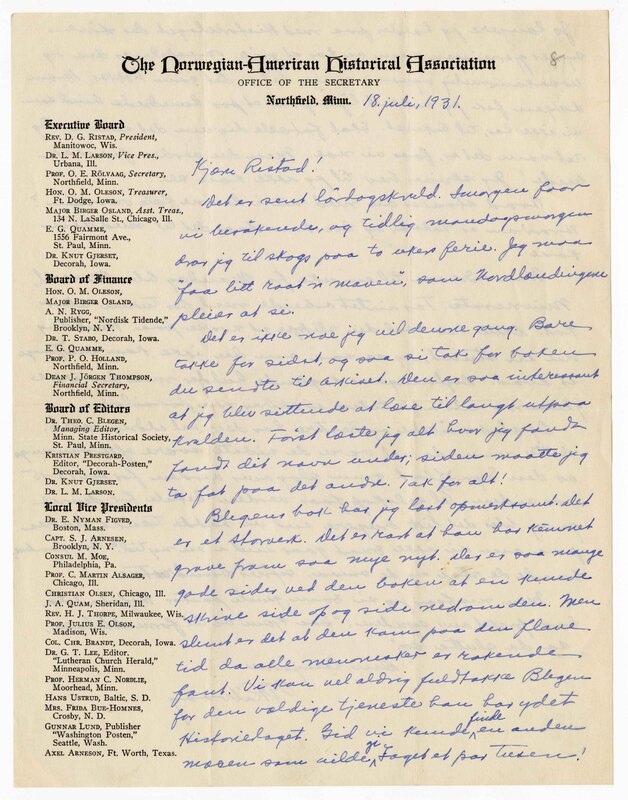 8
The Norwegian-American Historical Association
OFFICE OF THE SECRETARY
Northfield, Minn. 18. juli, 1931.
Executive Board
REV. D. G. RISTAD, President,
Manitowoc, Wis.
DR. L. M. LARSON, Vice Pres.,
Urbana, Ill.
PROF. O. E. RÖLVAAG, Secretary,
Northfield, Minn.
HON. O. M. OLESON, Treasurer,
Ft. Dodge, Iowa.
MAJOR BIRGER OSLAND, Asst. Treas.,
134 N. LaSalle St., Chicago, Ill.
E. G. QUAMME,
1556 Fairmont Ave.,
St. Paul, Minn.
DR. KNUT GJERSET,
Decorah, Iowa.
Board of Finance
HON. O. M. OLESON,
MAJOR BIRGER OSLAND,
A. N. RYGG,
Publisher, "Nordisk Tidende,"
Brooklyn, N. Y.
DR. T. STABO, Decorah, Iowa.
E. G. QUAMME,
PROF. P. O. HOLLAND,
Northfield, Minn.
DEAN J. JÖRGEN THOMPSON,
Financial Secretary,
Northfield, Minn.
Board of Editors
DR. THEO. C. BLEGEN,
Managing Editor,
Minn. State Historical Society,
St. Paul, Minn.
KRISTIAN PRESTGARD,
Editor, "Decorah-Posten,"
Decorah, Iowa.
DR. KNUT GJERSET,
DR. L. M. LARSON.
Local Vice Presidents
DR. E. NYMAN FIGVED,
Boston, Mass.
CAPT. S. J. ARNESEN,
Brooklyn, N. Y.
CONSUL M. MOE,
Philadelphia, Pa.
PROF. C. MARTIN ALSAGER,
Chicago, Ill.
CHRISTIAN OLSEN, Chicago, Ill.
J. A. QUAM, Sheridan, Ill.
REV. H. J. THORPE, Milwaukee, Wis.
PROF. JULIUS E. OLSON,
Madison, Wis.
COL. CHR. BRANDT, Decorah, Iowa.
DR. G. T. LEE, Editor,
"Lutheran Church Herald,"
Minneapolis, Minn.
PROF. HERMAN C. NORDLIE,
Moorhead, Minn.
HANS USTRUD, Baltic, S. D.
MRS. FRIDA BUE-HOMNES,
Crosby, N. D.
GUNNAR LUND, Publisher
"Washington Posten,"
Seattle, Wash.
AXEL ARNESON, Ft. Worth, Texas.
Kjære Ristad!
Det er sent lördagskveld. Imorgen faar
vi besökende, og tidlig mandagsmorgen
drar jeg til skogs paa to ukers ferie. Jeg maa
"faa litt raat i maven", som Nordlændingene
pleier at si.
Det er ikke noe jeg vil denne gang. Bare
takke for sidst, og saa si tak for boken
du sendte til arkivet. Den er saa interessant
at jeg blev sittende at læse til langt utpaa
kvelden. Först læste jeg alt hvor jeg fandt
fandt dit navn under; siden maatte jeg
ta fat paa det andre. Tak for alt!
Blegens bok har jeg læst opmerksomt. Det
er et storverk. Det er rart at han har kunnet
grave fram saa mye nyt. Der er saa mange
gode sider ved den boken at en kunde
skrive side op og side ned om den. Men
slemt er det at den kom paa den flave
tid da alle mennesker er rakende
fant. Vi kan vel aldrig fuldtakke Blegen
for den vældige tjeneste han har ydet
Historielaget. Gid vi kunde finde en anden
mæcen som vilde gi Laget et par tusen!